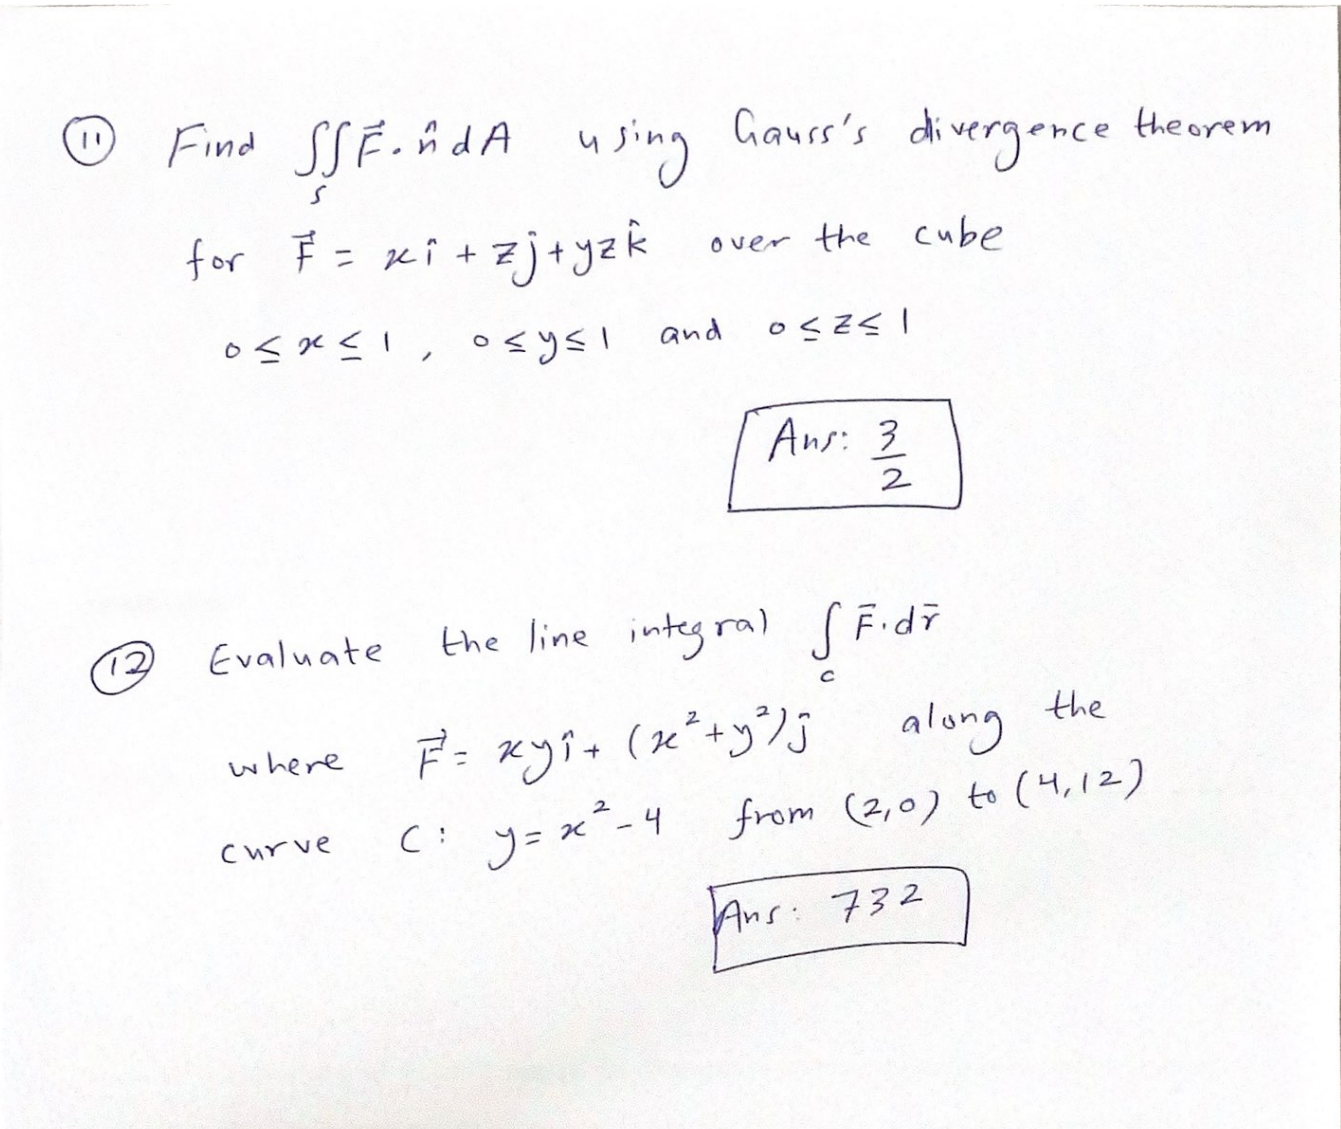 (11) Find ∬_S F⃗ . n̂ dA using Gauss's divergence theorem
for F⃗ = xî + zĵ + yzk̂ over the cube
0 ≤ x ≤ 1 , 0 ≤ y ≤ 1 and 0 ≤ z ≤ 1
Ans: 3/2
(12) Evaluate the line integral ∫_C F̄.dr̄
where F⃗ = xyî + (x²+y²)ĵ along the
curve C: y = x² - 4 from (2,0) to (4,12)
Ans: 732